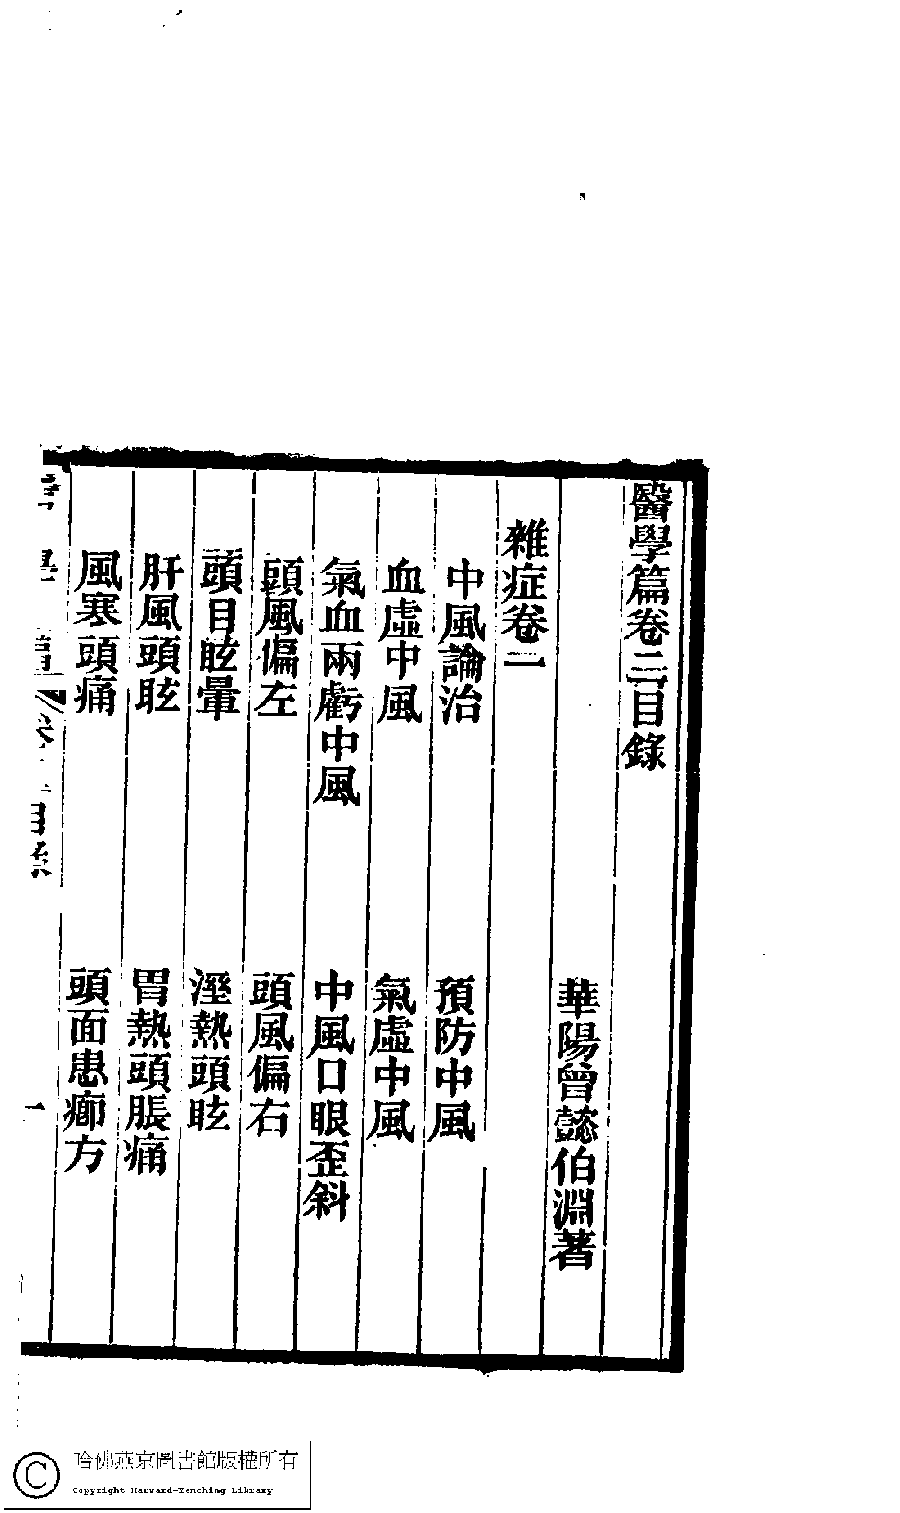 醫學篇卷二目錄
華陽曾懿伯淵著
雜症卷二
中風論治　預防中風
血虛中風　氣虛中風
氣血兩虧中風　中風口眼歪斜
頭風偏左　頭風偏右
頭目眩暈　溼熱頭眩
肝風頭眩　胃熱頭脹痛
風寒頭痛　頭面患癤方
一
哈佛燕京圖書館版權所有
Copyright Harvard-Yenching Library